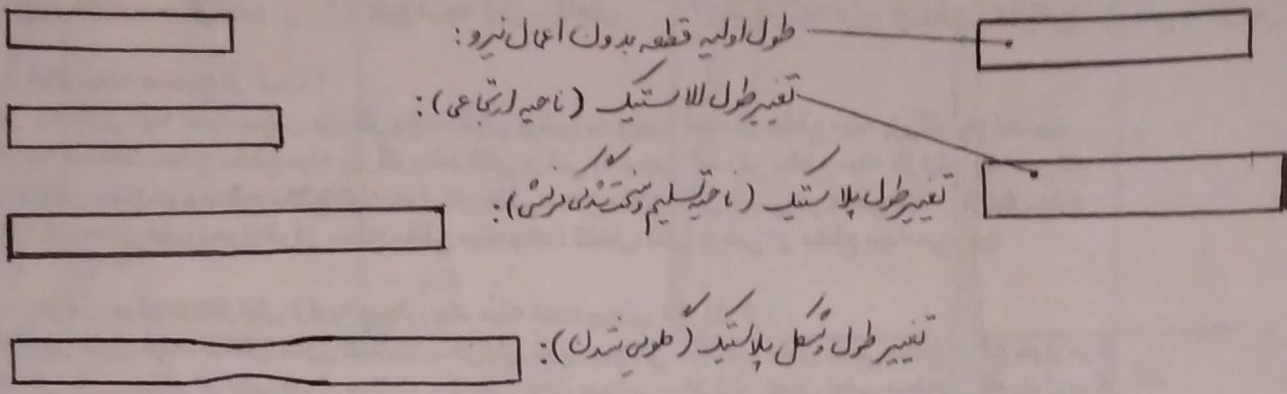 طول اولیه قطعه بدون اعمال نیرو:
تغییر طول الاستیک (ناحیه ارتجاعی):
تغییر طول پلاستیک (ناحیه تسلیم و سخت شدگی کرنشی):
تغییر طول و شکل پلاستیک (گلویی شدن):